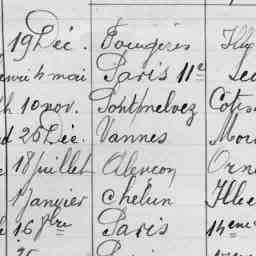 19 Déc. Fougères Ille
4 mai Paris 11e
10 nov. Pontmelvez Cotes
26 Déc. Vannes Mor
18 juillet Alençon Orne
1 Janvier Chelun Ille
16 Paris 14eme